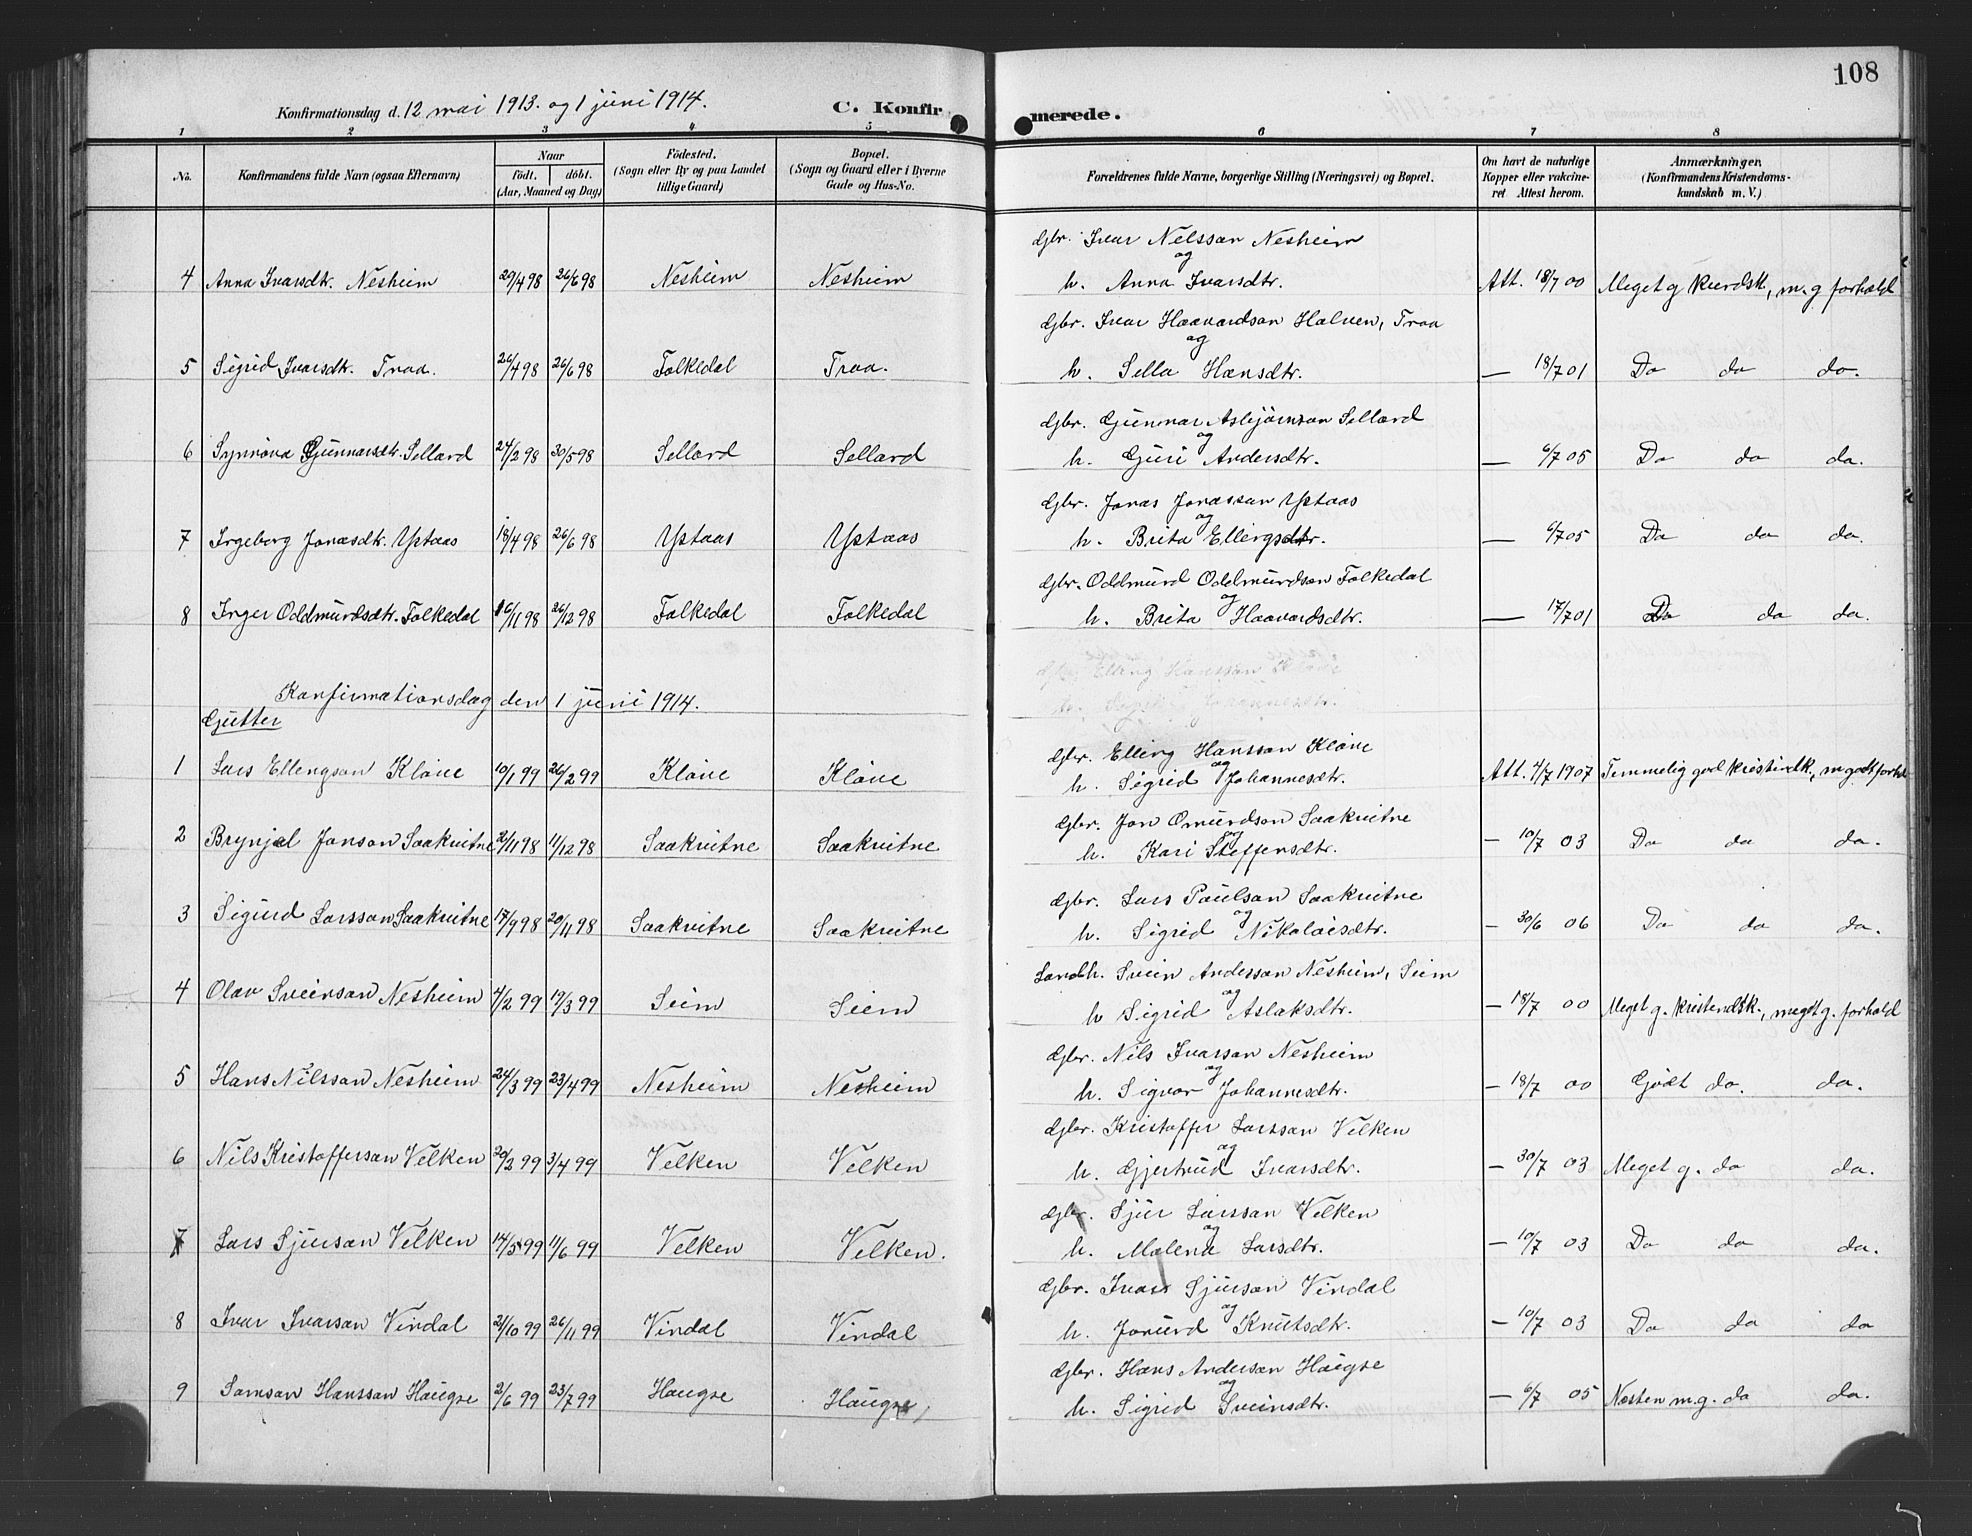 108
Konfirmationsdag d. 12 mai 1913. og 1 juni 1914. C. Konfirmerede.
1 2 3 4 5 6 7 8
No. Konfirmandens fulde Navn (ogsaa Efternavn) Naar født. døbt. (Aar, Maaned og Dag) Födested. (Sogn eller By og paa Landet tillige Gaard) Bopæl. (Sogn og Gaard eller i Byerne Gade og Hus-No. Forældrenes fulde Navne, borgerlige Stilling (Næringsvei) og Bopæl. Om havt de naturlige Kopper eller vakcineret Attest herom. Anmærkninger. (Konfirmandens Kristendomskundskab m. V.)
Gbr. Ivar Nelssan Nesheim
og
4 Anna Ivarsdtr. Nesheim 29/4 98 26/6 98 Nesheim Nesheim h. Anna Ivarsdtr. Att. 18/7 00 Meget g kundsk, m. g forhold
Gbr. Ivar Haavardsan Halven, Traa
og
5 Sigrid Ivarsdtr. Traa. 26/4 98 26/6 98 Folkedal Traa. h. Sella Hansdtr. — 18/7 01 Do do do.
Gbr. Gunnar Asbjørnsan Sellard
og
6 Synnøva Gunnarsdtr. Sellard 24/2 98 30/5 98 Sellard Sellard h. Guri Andersdtr. — 6/7 05 Do do do.
Gbr. Jonas Jonassan Ystaas
og
7 Ingeborg Jonasdtr. Ystaas 18/4 98 26/6 98 Ystaas Ystaas h. Brita Ellingsdtr. — 6/7 05 Do do do.
Gbr. Oddmund Oddmundsan Folkedal
og
8 Inger Oddmundsdtr. Folkedal 16/11 98 26/12 98 Folkedal Folkedal h. Brita Haavardsdtr. — 17/7 01 Do do do.
Konfirmationsdag den 1 juni 1914.
Gutter
Gbr. Elling Hanssan Kløve
og
1 Lars Ellengsan Kløve 10/1 99 26/2 99 Kløve Kløve h. Sigrid Johannesdtr. Att. 4/7 1907 Temmelig god kristindk, m godt forhol
Gbr. Jon Omundsan Saakvitne
og
2 Brynjel Jonson Saakvitne 2/11 98 11/12 98 Saakvitne Saakvitne h. Kari Steffensdtr. — 10/7 03 Do do do.
Gbr. Lars Paulsan Saakvitne
og
3 Sigurd Larssan Saakvitne 17/9 98 20/11 98 Saakvitne Saakvitne h. Sigrid Nikolaisdtr. — 30/6 06 Do do da.
Landh. Svein Anderssan Nesheim, Seim
og
4 Olav Sveinsan Nesheim 4/2 99 19/3 99 Seim Seim h Sigrid Aslaksdtr. — 18/7 00 Meget g. kristendsk., meget g. forhold
Gbr. Nils Ivarssan Nesheim
og
5 Hans Nilssan Nesheim 24/3 99 23/4 99 Nesheim Nesheim h. Sigvor Johannesdtr. — 18/7 00 Godt do. do.
Gbr. Kristoffer Larssan Velken
og
6 Nils Kristoffersan Velken 20/2 99 3/4 99 Velken Velken h. Gjertrud Ivarsdtr. — 30/7 03 Meget g. do da.
Gbr. Sjur Larssan Velken
og
7 Lars Sjursan Velken 14/5 99 11/6 99 Velken Velken. h. Malena Larsdtr. — 10/7 03 Do do da.
Gbr. Ivar Sjursan Vindal
og
8 Ivar Ivarsan Vindal 2/10 99 26/11 99 Vindal Vindal h. Jorund Knutsdtr. — 10/7 03 Do do do
Gbr. Hans Andersan Haugse
og
9 Samsan Hanssan Haugse 2/6 99 23/7 99 Haugse Haugse, h. Sigrid Sveinsdtr. — 6/7 05 Nesten m. g. do do.